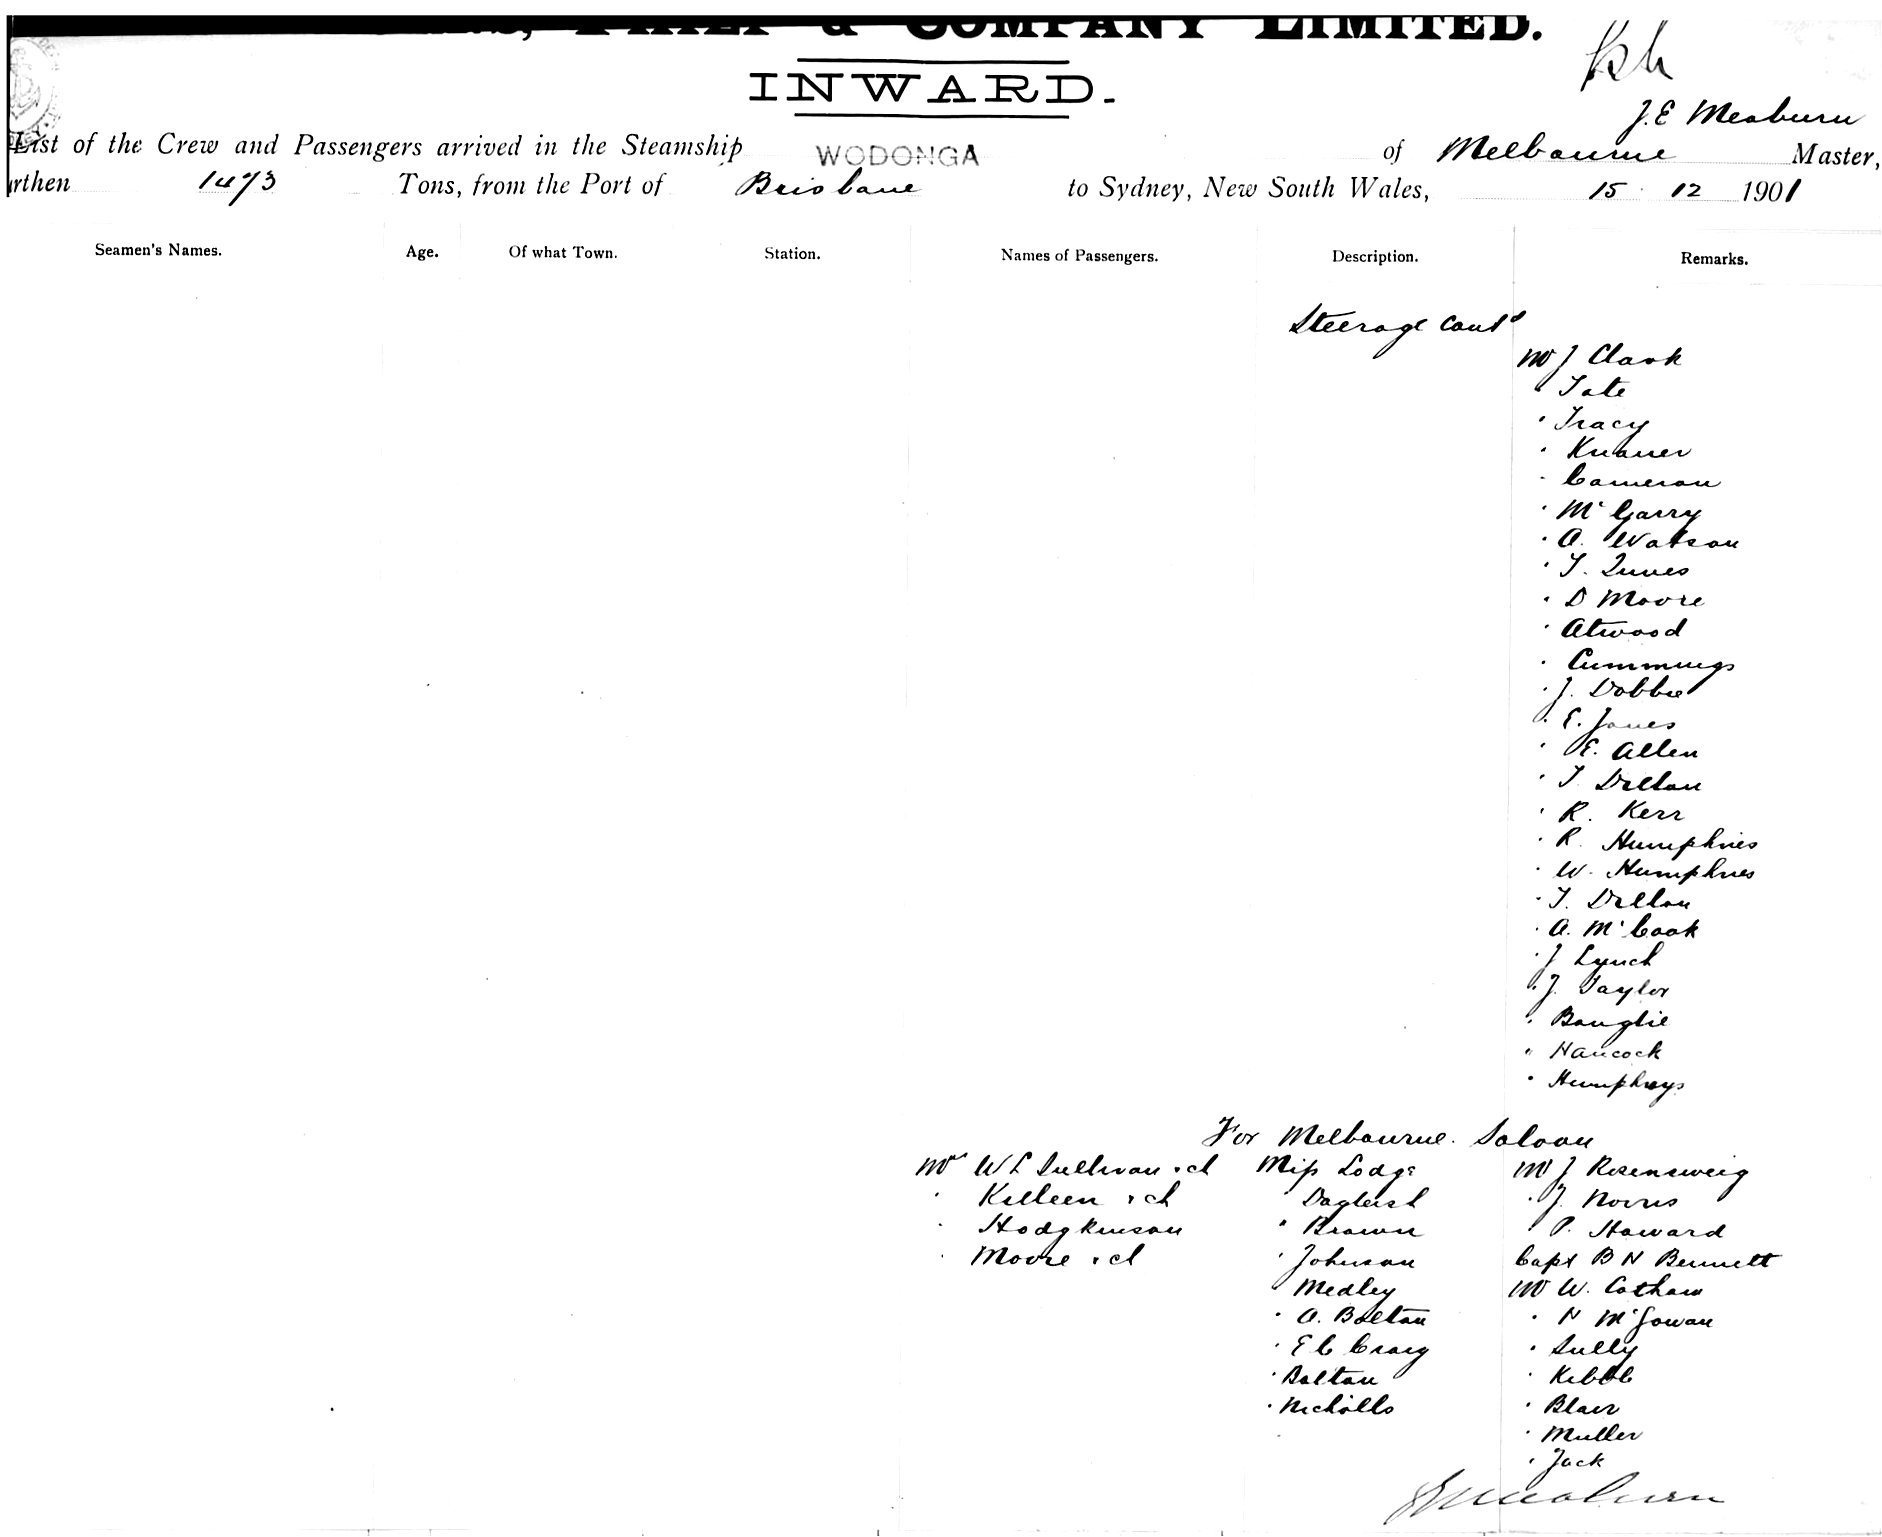 PHILP & COMPANY LIMITED.
INWARD.
J.E Meaburn
List of the Crew and Passengers arrived in the Steamship WODONGA of Melbourne Master,
rthen 1473 Tons, from the Port of Brisbane to Sydney, New South Wales, 15 . 12 1901
Seamen's Names. Age. Of what Town. Station. Names of Passengers. Description. Remarks.
Steerage contd
Mr J Clark
" Tate
" Tracy
" Knauer
" Cameron
" McGarry
" A. Watson
" T.
" D Moore
" Atwood
" Cummings
" J. Dobbie
" E. Jones
" E. Allen
" T Dillon
" R. Kerr
" R. Humphries
" W. Humphries
" T. Dillon
" A. McCook
" J Lynch
" J. Taylor
"
" Hancock
" Humphreys
For Melbourne. Saloon
Mrs W L Sullivan & ch Miss Lodge Mr J Rosensweig
" Killeen & ch " Dagleish " J. Norris
" Hodgkinson " Brown " P. Howard
" Moore & ch " Johnson Capt B N Bennett
" Medley Mr W. Cotham
" A. Bolton " N McGowan
" E C Craig " Sully
" Bolton " Kibble
" Nicholls " Blair
" Muller
" Jack
J E Meaburn